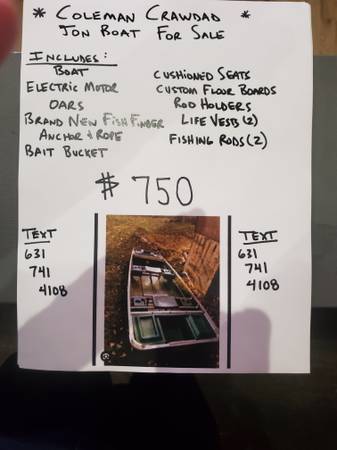 * COLEMAN CRAWDAD *
JON BOAT FOR SALE
INCLUDES:
BOAT
ELECTRIC MOTOR
OARS
BRAND NEW FISH FINDER
ANCHOR & ROPE
BAIT BUCKET
CUSHIONED SEATS
CUSTOM FLOOR BOARDS
ROD HOLDERS
LIFE VESTS (2)
FISHING RODS (2)
$750
TEXT
631
741
4108
TEXT
631
741
4108